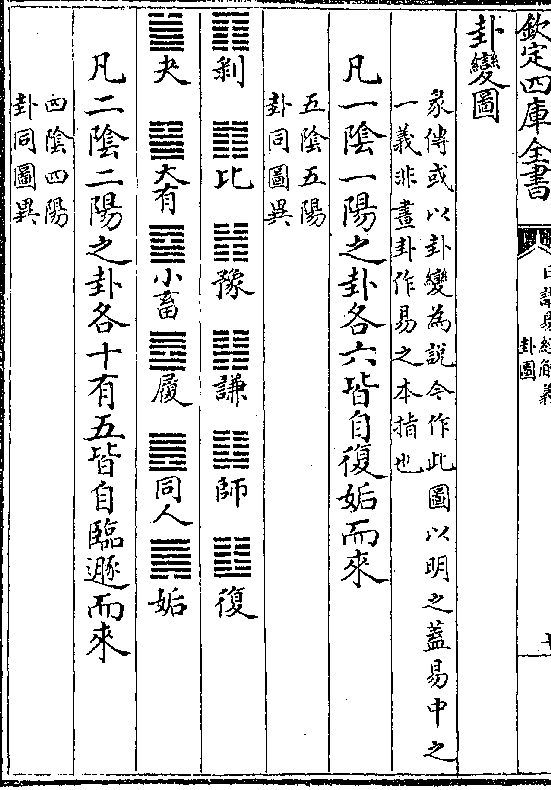 欽定四庫全書
日講易經解義
卦圖
卦變圖
彖傳或以卦變為說今作此圖以明之蓋易中之
一義非畫卦作易之本指也
凡一陰一陽之卦各六皆自復姤而來
五陰五陽
卦同圖異
剥 比 豫 謙 師 復
夬 大有 小畜 履 同人 姤
凡二陰二陽之卦各十有五皆自臨遯而來
四陰四陽
卦同圖異